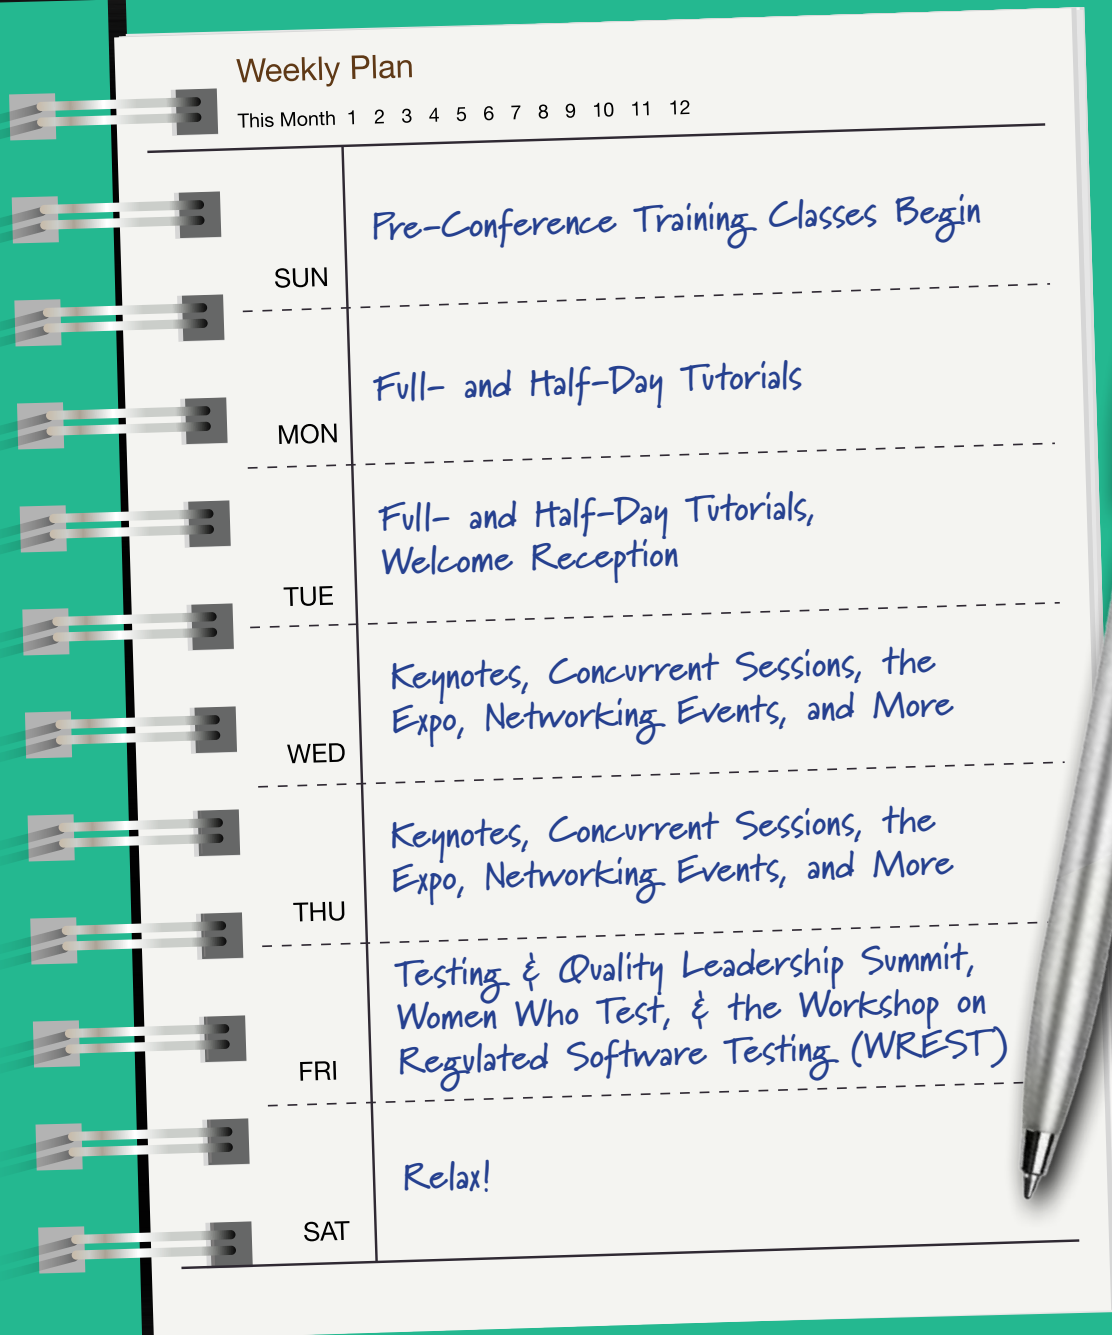 Weekly Plan
This Month 1 2 3 4 5 6 7 8 9 10 11 12
Pre-Conference Training Classes Begin
SUN
Full- and Half-Day Tutorials
MON
Full- and Half-Day Tutorials,
Welcome Reception
TUE
Keynotes, Concurrent Sessions, the
Expo, Networking Events, and More
WED
Keynotes, Concurrent Sessions, the
Expo, Networking Events, and More
THU
Testing & Quality Leadership Summit,
Women Who Test, & the Workshop on
Regulated Software Testing (WREST)
FRI
Relax!
SAT